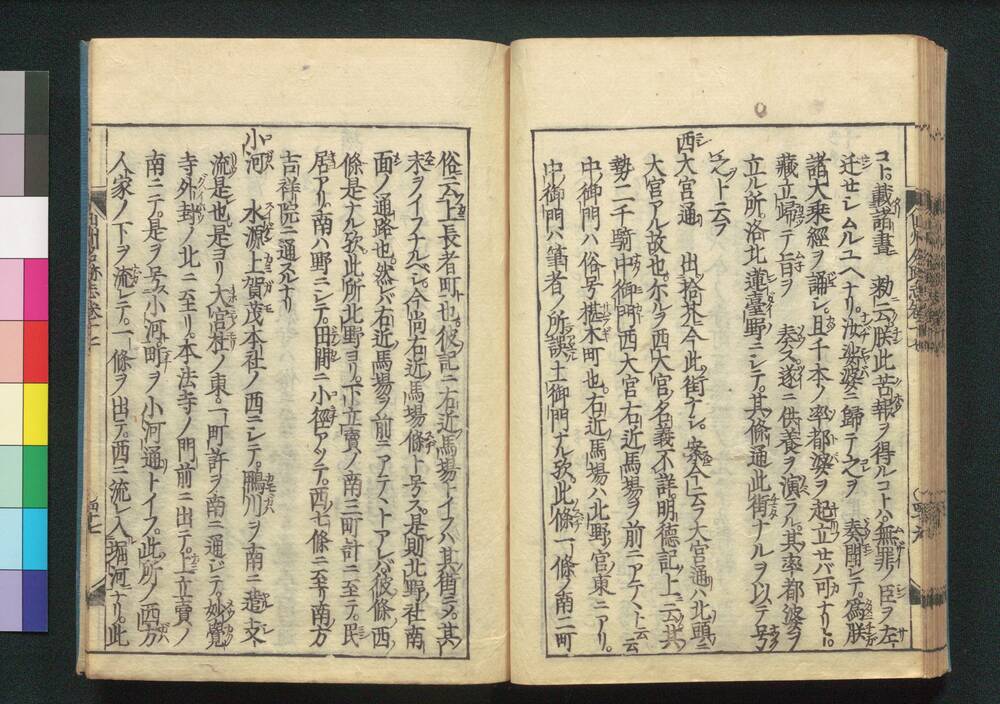 コトヲ載諸畫 勅云朕此苦報ヲ得ルコトハ無罪ノ臣ヲ左
迁セシムルユヘナリ。汝婆婆ニ歸テ之ヲ 奏聞シテ。爲朕
諸大乗經ヲ誦シ。且千本ノ率都婆ヲ起立セバ可ナリト。
藏立歸テ旨ヲ 奏ス。遂ニ供養ヲ演フル。其率都婆ヲ
立ル所。洛北蓮臺野ニシテ。其條通此街ナルヲ以テ号
之ト云フ
西大宮通 出拾芥今此街ナシ。案今云フ大宮通ハ北頭ニ
大宮アル故也。尓ルヲ西大宮名義不詳。明德記上ニ云其
勢二千騎中御門西大宮右近馬場ヲ前ニアテヽト云云
中御門ハ俗号椹木町也。右近馬場ハ北野ノ宮東ニアリ。
中御門ハ筆者ノ所誤土御門ナル歟。此條一條ノ南二町
俗云上長者町也。彼記ニ右近馬場トイフハ其街ニメ。其
末ヲライフナルベシ。今尚右近馬場條ト号ス。是則北野社南
面ノ通路也。然レバ右近馬場ヲ前ニアテヽトアレバ彼條西
條是ナル歟。此所北野ヨリ。下立賣ノ南三町計ニ至テ。民
居アリ。南ハ野ニシテ。田間ニ小徑アツテ。西七條ニ至リ南方
吉祥院ニ通スルナリ
小河 水源上賀茂本社ノ西ニシテ。鴨川ヲ南ニ遣支
流是也。是ヨリ大宮杜ノ東。一町許ヲ南ニ通ジテ。妙覺
寺外封ノ北ニ至リ。本法寺ノ門前ニ出テ。上立賣ノ
南ニテ。是ヲ号ス小河町ヲ小河通トイフ。此所ノ西方
人家ノ下ヲ流レテ。一條ヲ出テ。西ニ流レ入堀河ナリ。此